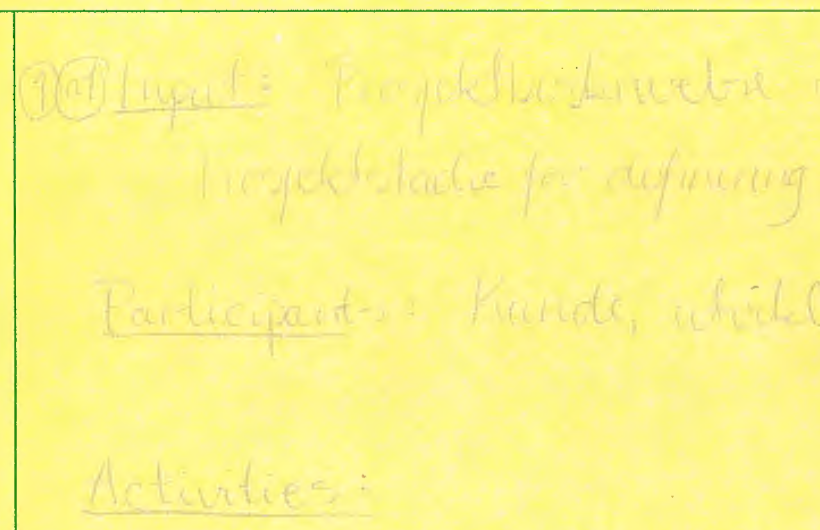 Input: Prosjektbeskrivelse
Prosjektstadie for definering
Participants: Kunde, utvikl
Activities: